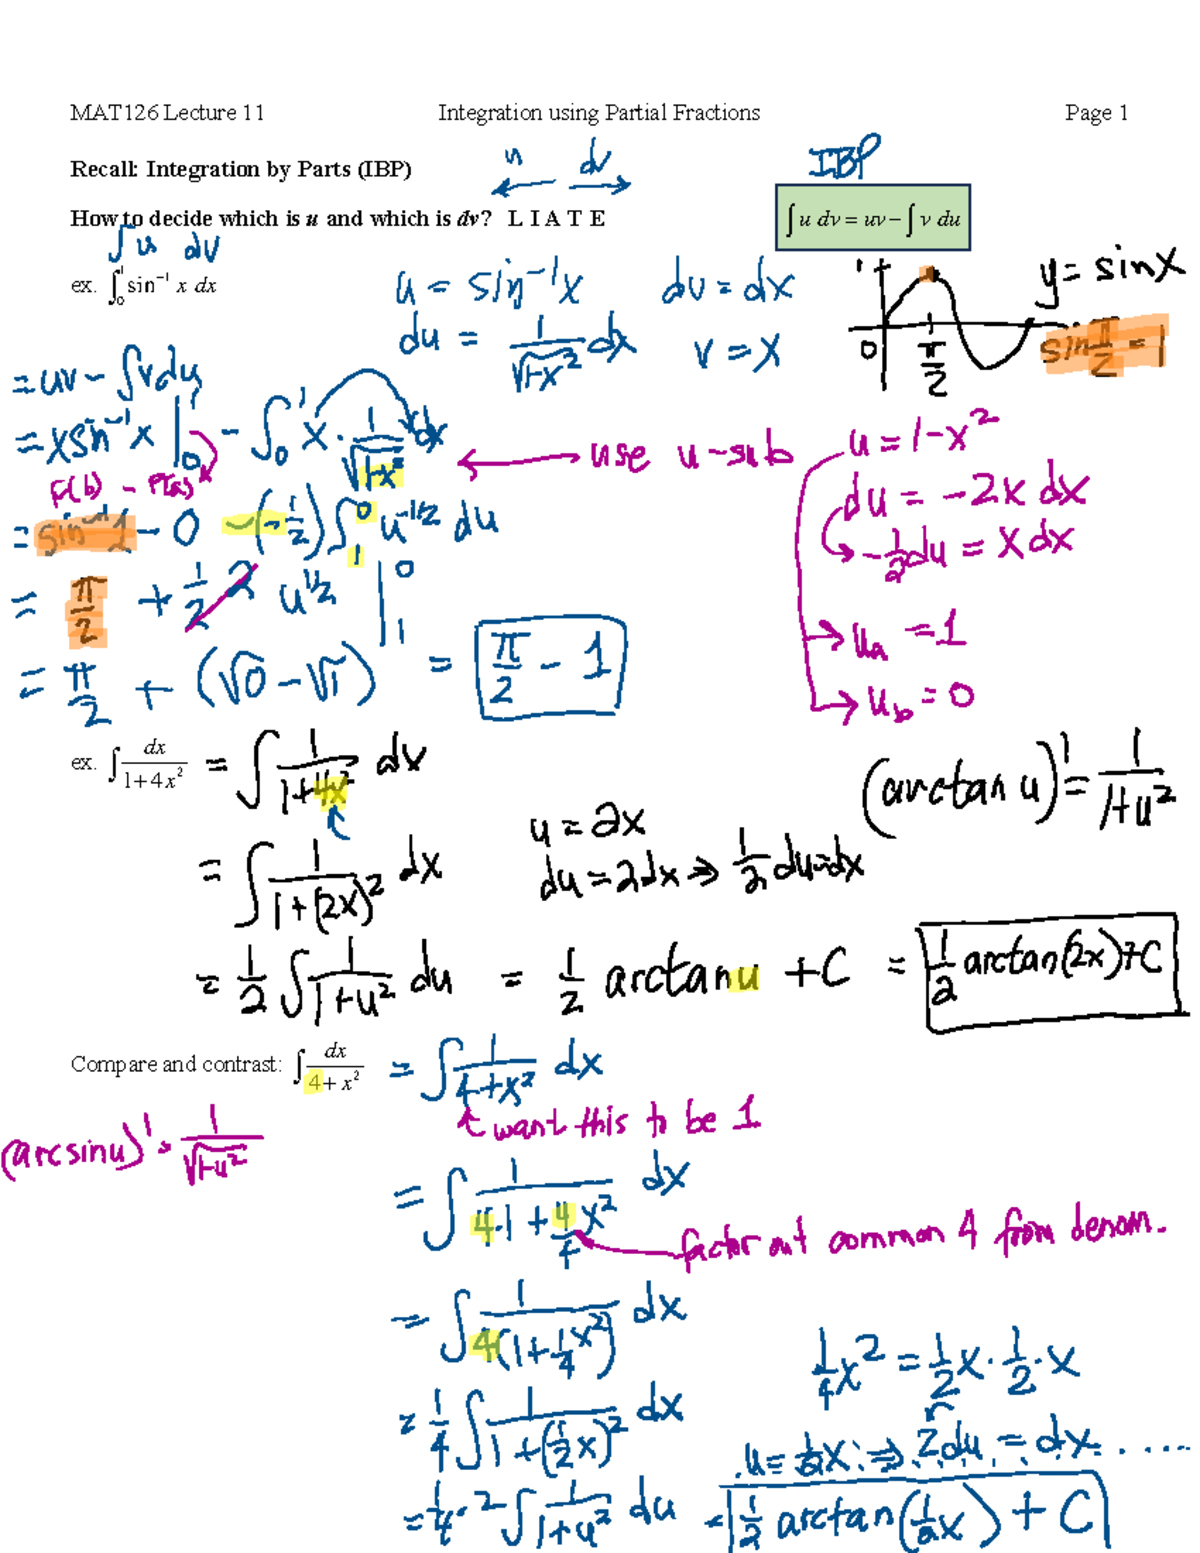 MAT126 Lecture 11 Integration using Partial Fractions Page 1
Recall: Integration by Parts (IBP)
u dv
IBP
How to decide which is u and which is dv? L I A T E
∫ u dv = uv − ∫ v du
∫ u dv
ex. ∫₀¹ sin⁻¹ x dx
u = sin⁻¹x dv = dx
du = 1/√(1-x²) dx v = x
y = sinx
1
0 π/2
sin π/2 = 1
= uv - ∫vdu
= xsin⁻¹x |₀¹ - ∫₀¹ x · 1/√(1-x²) dx
← use u-sub
F(b) - F(a)
u = 1-x²
du = -2x dx
-1/2 du = x dx
u_a = 1
u_b = 0
= sin⁻¹1 - 0 -(-1/2) ∫₁⁰ u^(-1/2) du
= π/2 + 1/2 · 2 u^(1/2) |₁⁰
= π/2 + (√0 - √1) = π/2 - 1
ex. ∫ dx/(1+4x²) = ∫ 1/(1+4x²) dx
(arctan u)' = 1/(1+u²)
= ∫ 1/(1+(2x)²) dx
u = 2x
du = 2dx ⇒ 1/2 du = dx
= 1/2 ∫ 1/(1+u²) du = 1/2 arctan u + C = 1/2 arctan(2x)+C
Compare and contrast: ∫ dx/(4+x²) = ∫ 1/(4+x²) dx
want this to be 1
(arcsin u)' = 1/√(1-u²)
= ∫ 1/(4·1 + 4/4 x²) dx
factor out common 4 from denom.
= ∫ 1/(4(1+1/4 x²)) dx
1/4 x² = 1/2 x · 1/2 · x
= 1/4 ∫ 1/(1+(1/2 x)²) dx
u = 1/2 x ⇒ 2du = dx
= 1/4 · 2 ∫ 1/(1+u²) du = 1/2 arctan(1/2 x) + C